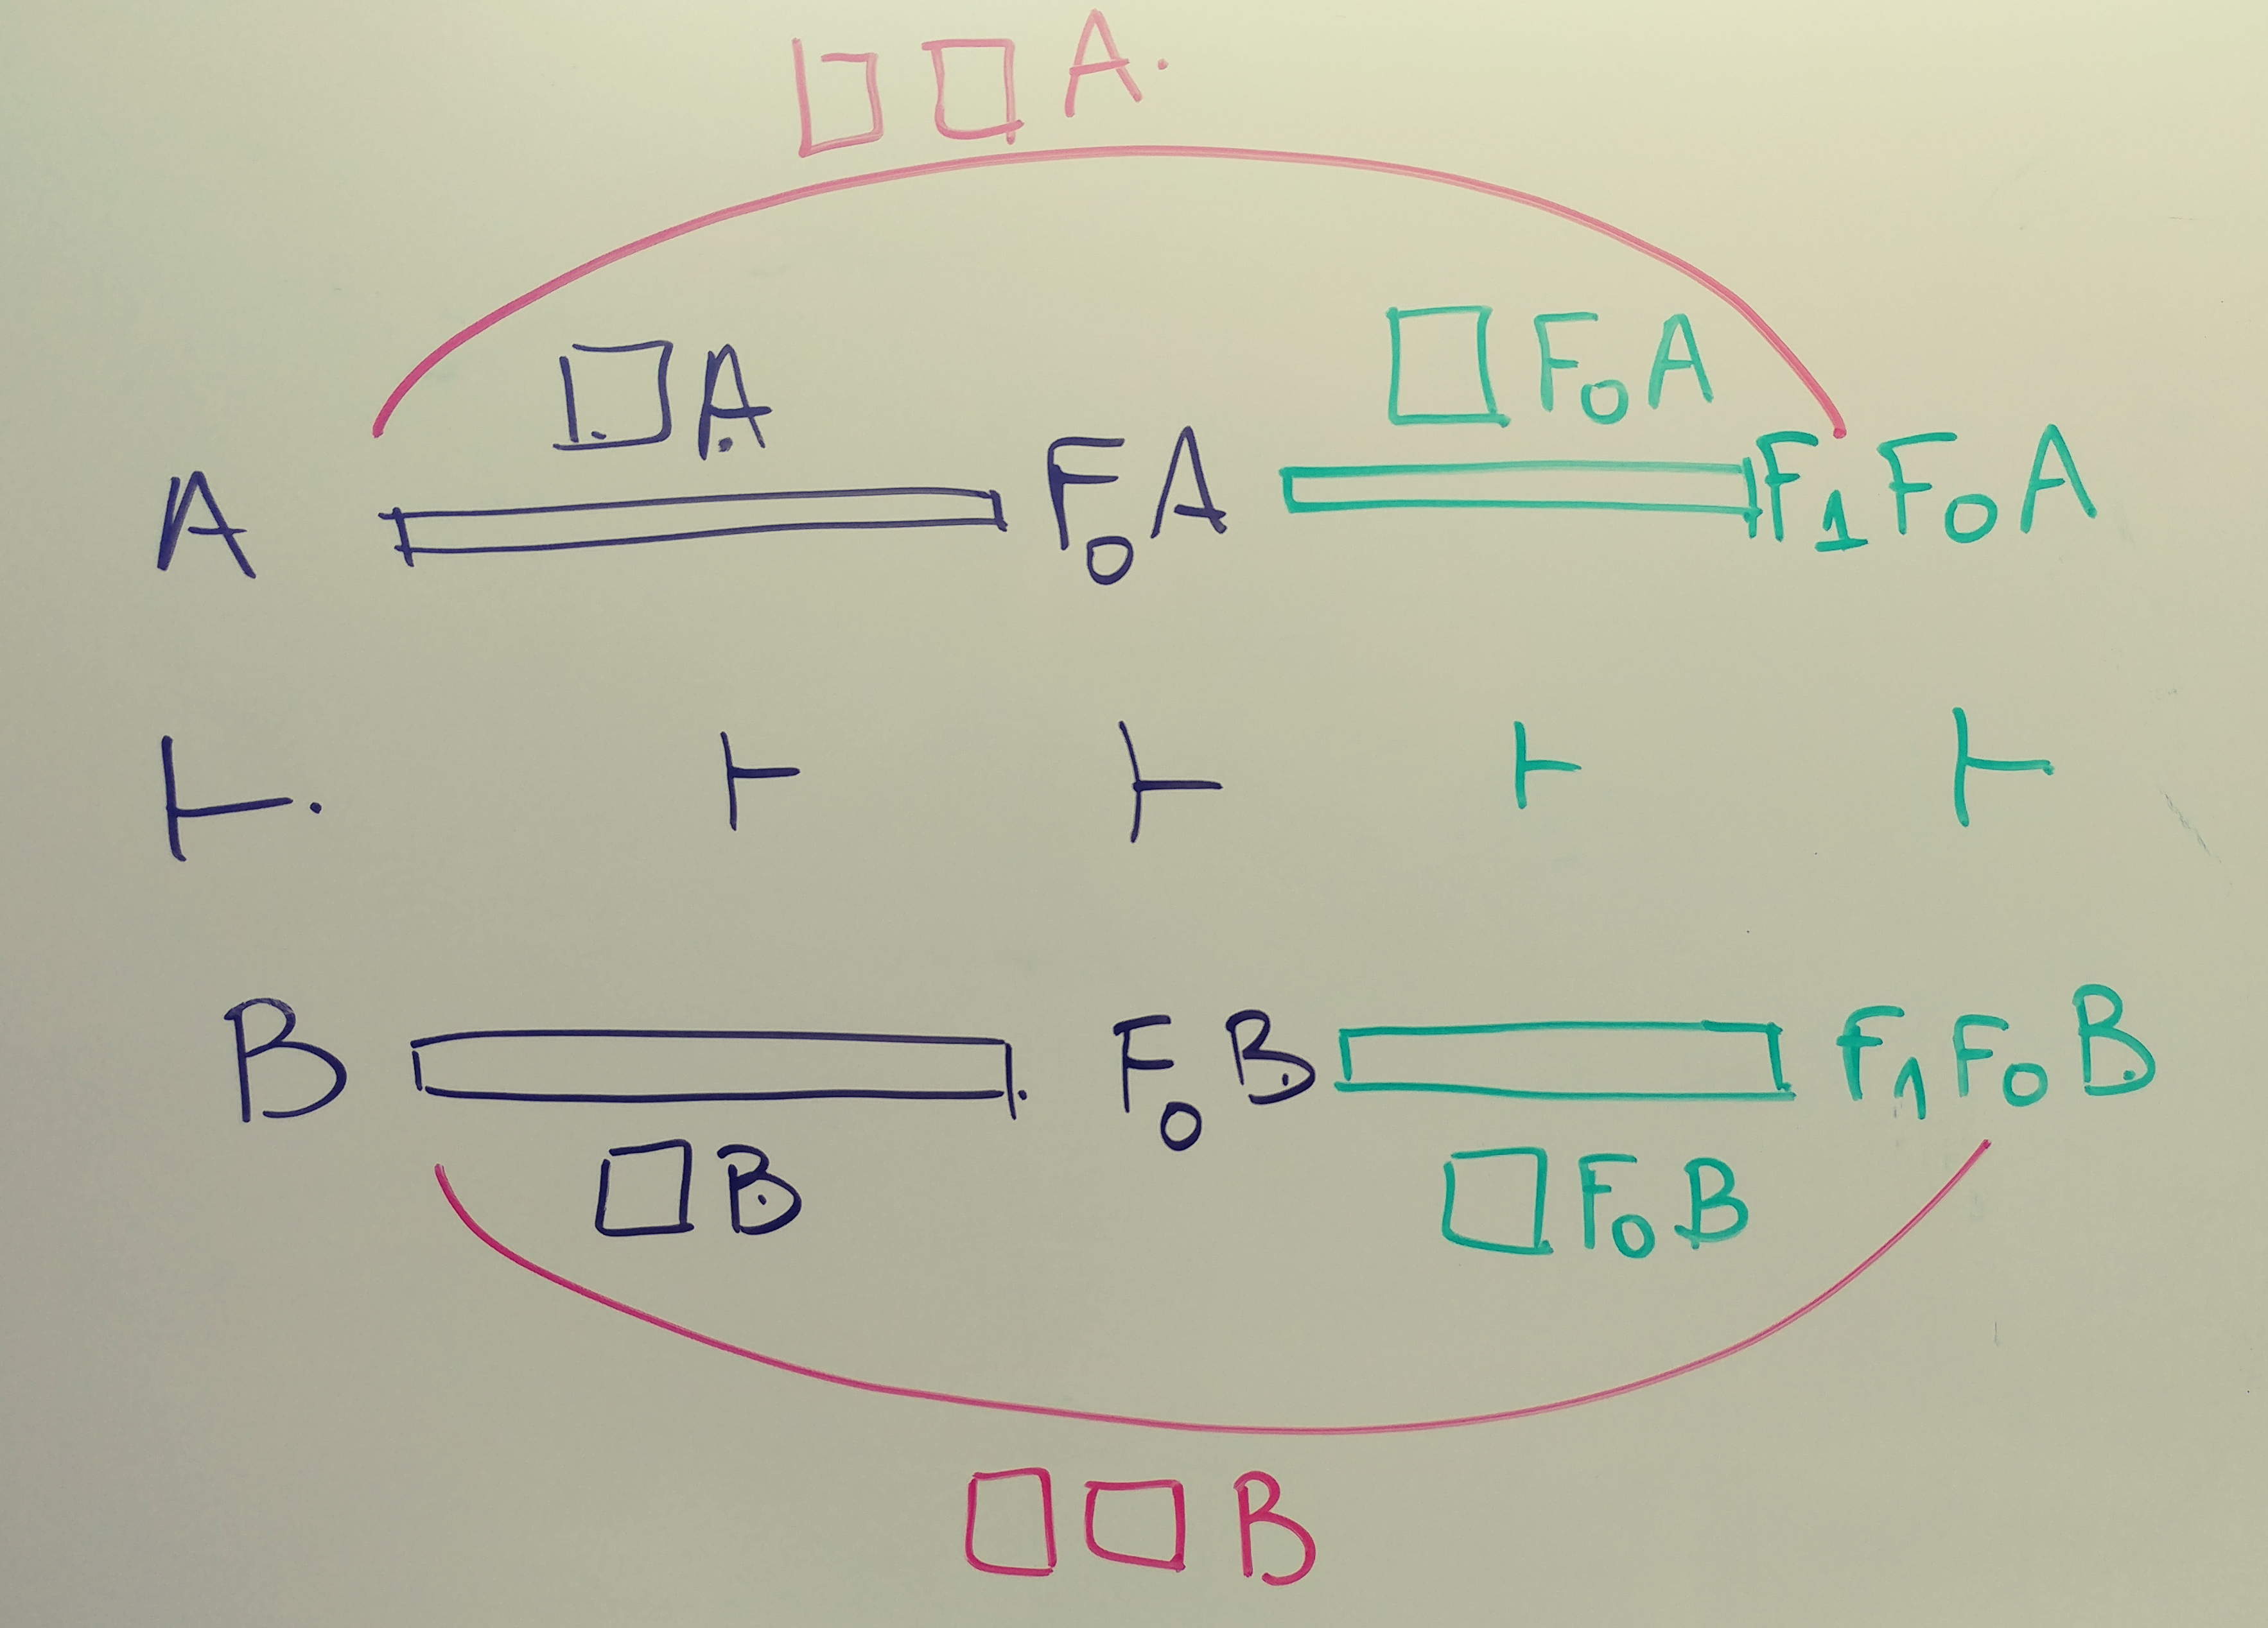 □ □ A.
□ A □ F₀A
A F₀A F₁F₀A
⊢. ⊢ ⊢ ⊢ ⊢
B F₀B F₁F₀B
□ B □ F₀B
□ □ B